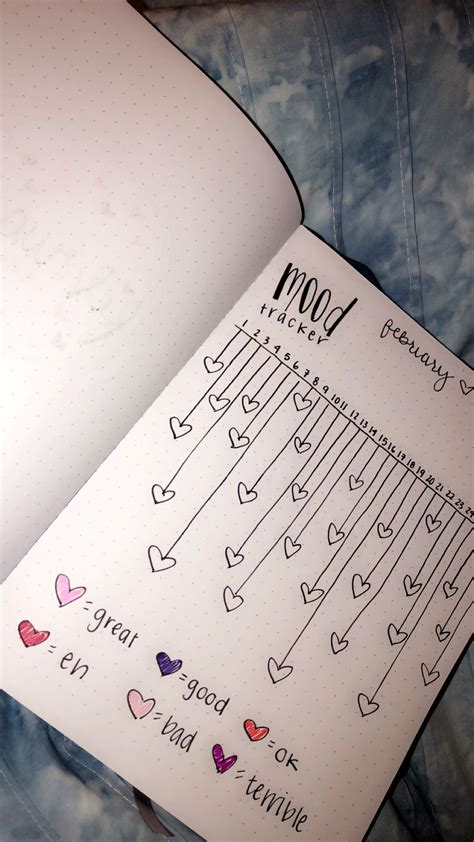 mood
tracker
february
1 2 3 4 5 6 7 8 9 10 11 12 13 14 15 16 17 18 19 20 21 22 23 24
= great
= en
= good
= bad
= ok
= terrible